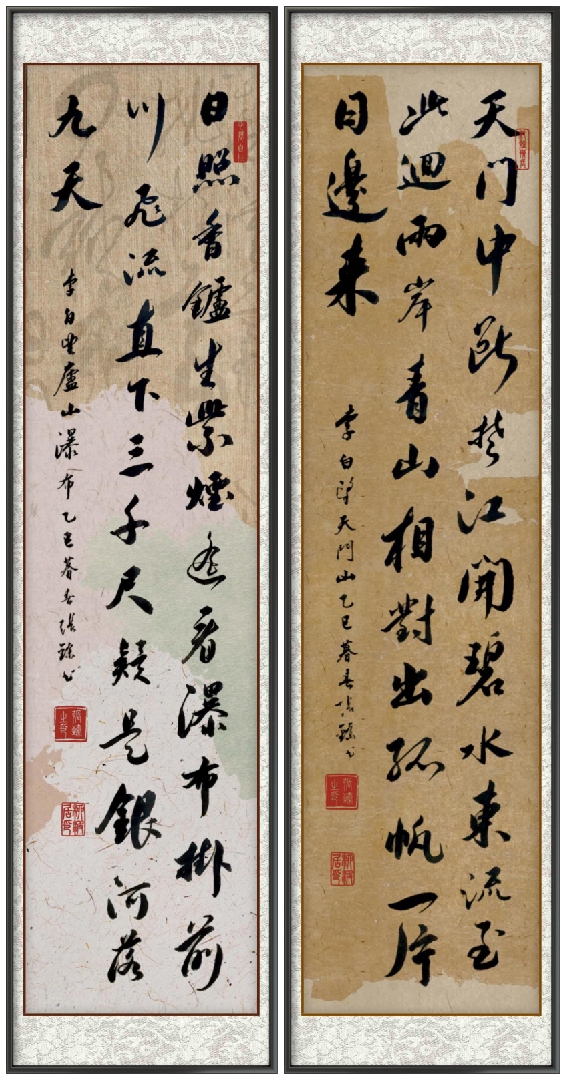 天門中斷楚江開碧水東流至
此迴兩岸青山相對出孤帆一片
日邊来
李白望天門山乙巳暮春張
日照香鑪生紫煙遙看瀑布掛前
川飛流直下三千尺疑是銀河落
九天
李白望廬山瀑布乙巳暮春張